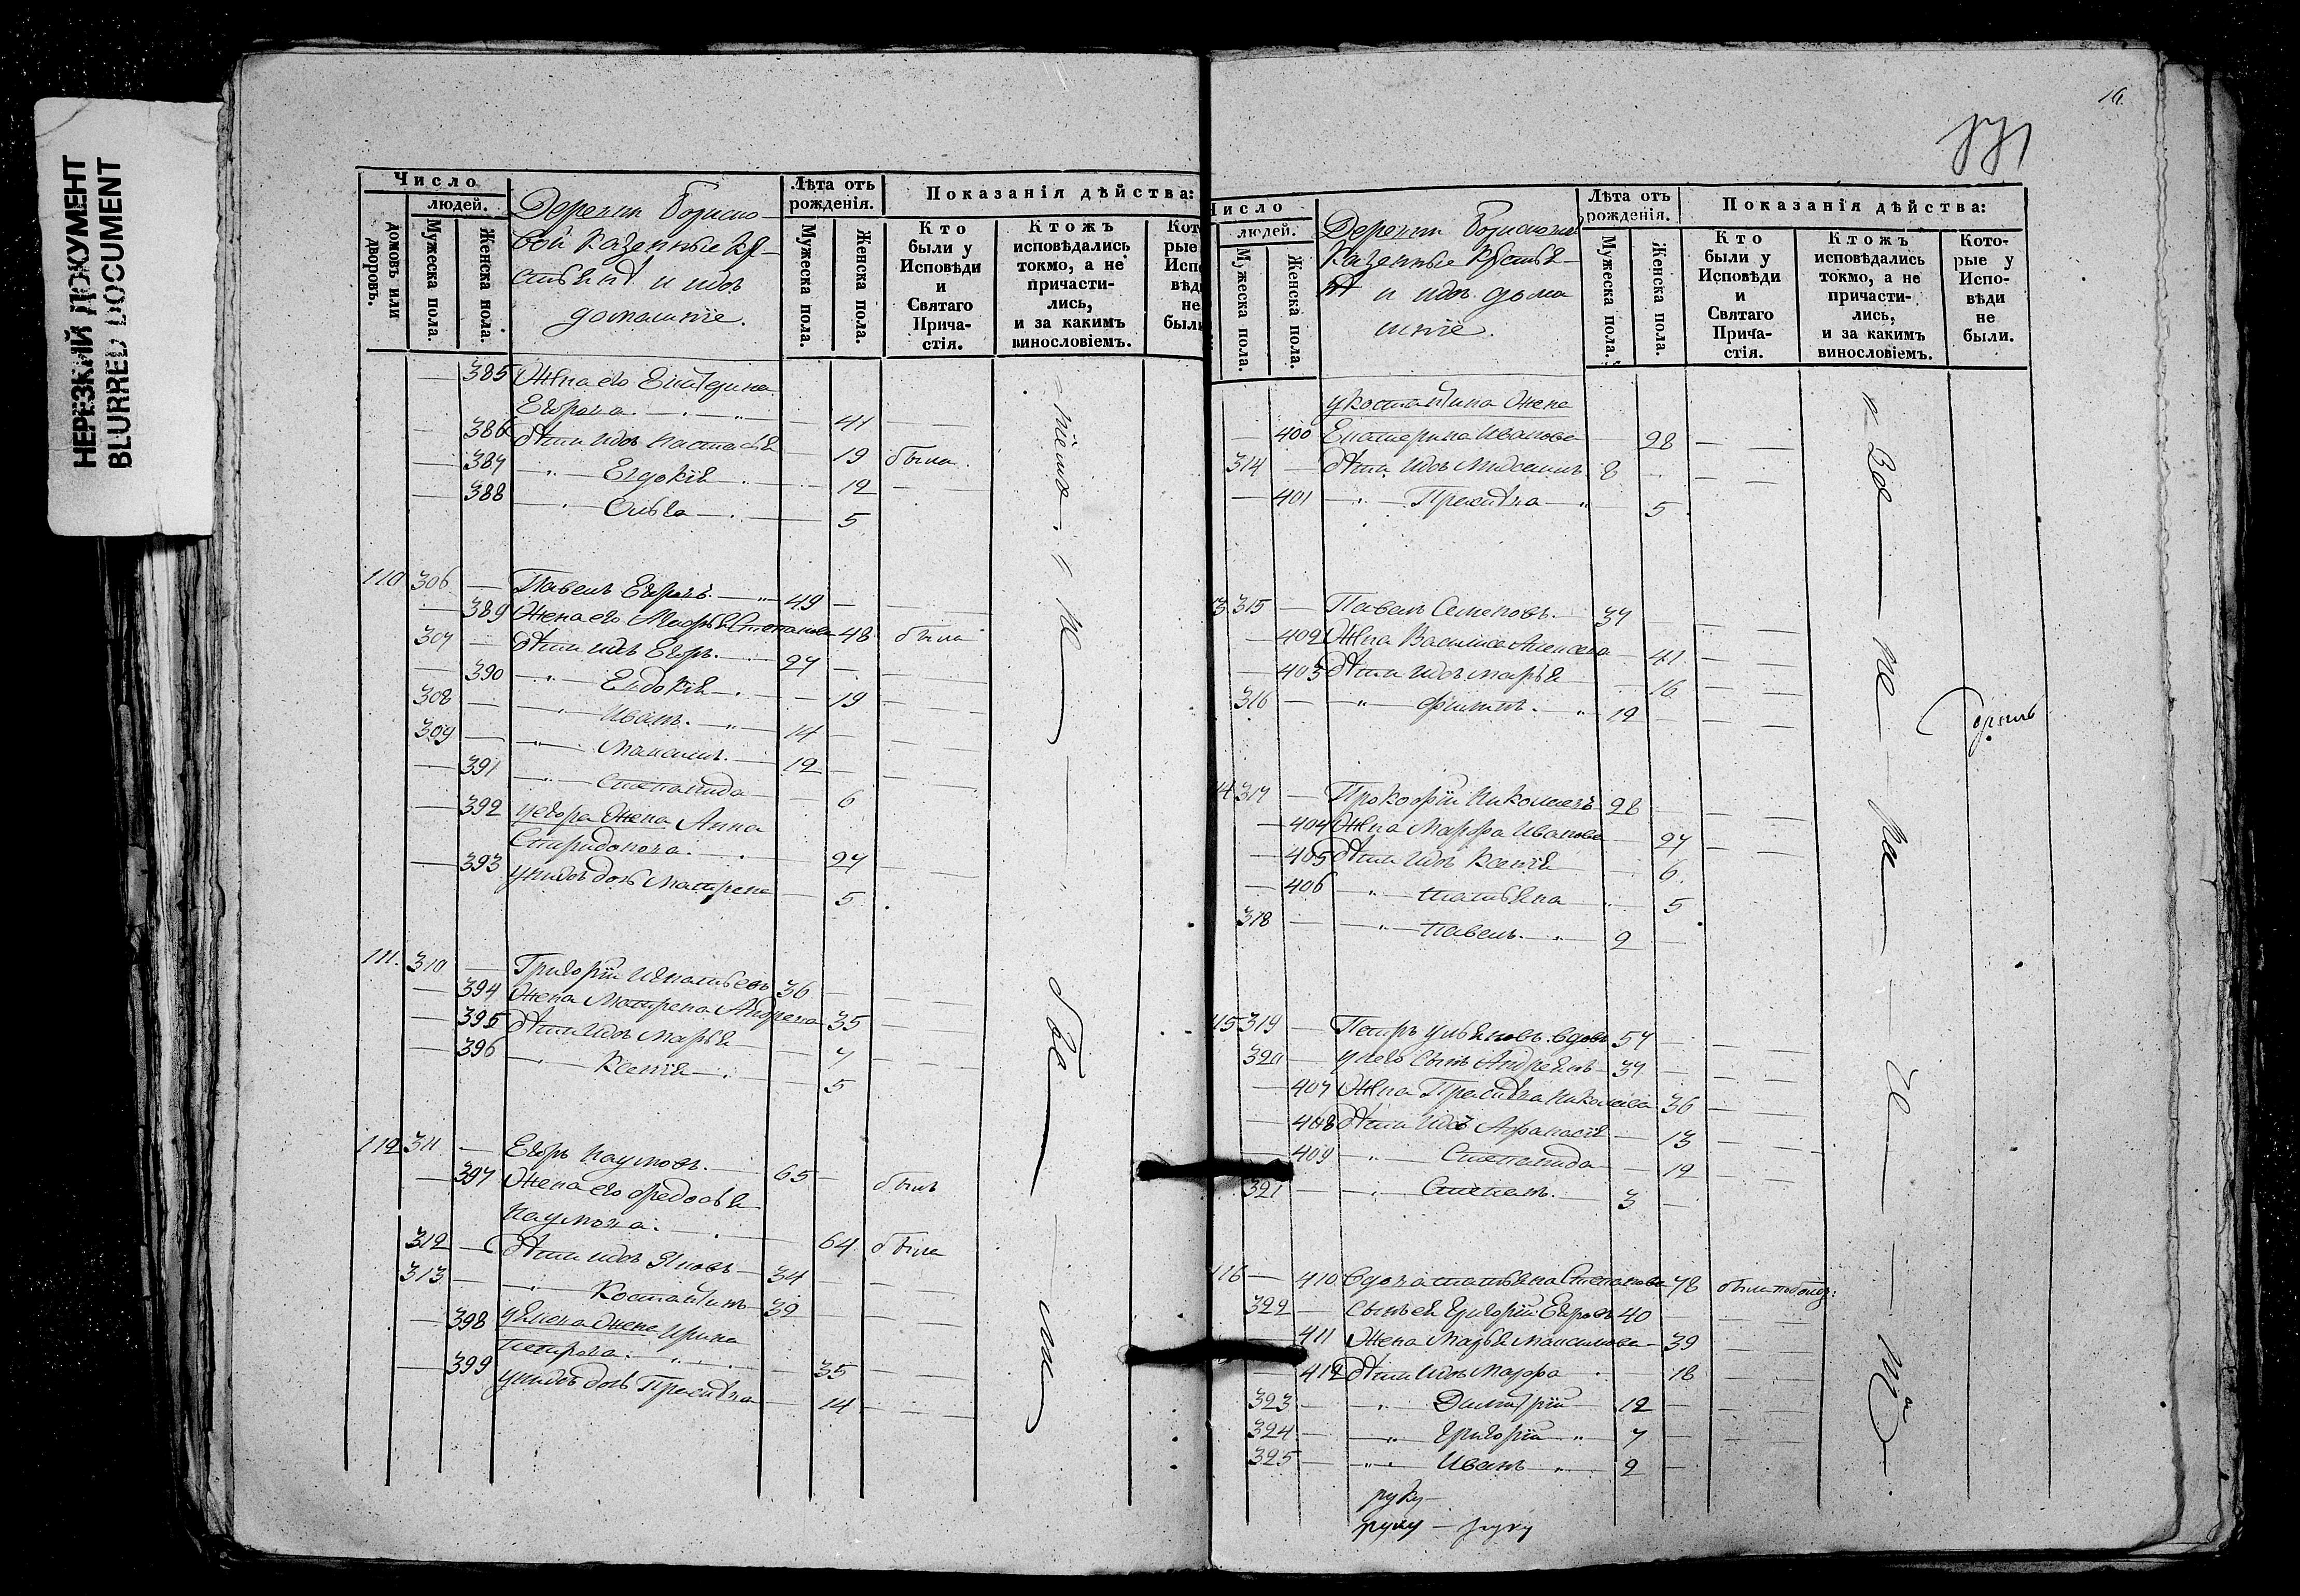 НЕРЕЗКИЙ ДОКУМЕНТ
BLURRED DOCUMENT
Число
людей.
домовъ или дворовъ.
Мужеска пола.
Женска пола.
Деревни
вой казенные кре
стьяня и ихъ
домашніе.
Лѣта отъ рожденія.
Мужеска пола.
Женска пола.
Показанія дѣйства:
Кто были у Исповѣди и Святаго Прича-стія.
Ктожъ исповѣдались токмо, а не причасти-лись, и за какимъ винословіемъ.
— 385 Жена его Екатерина
Егорова — 41
— 386 дѣти ихъ Настасья — 19 была
— 387 — Евдокія — 12
— 388 — — 5
110 306 — Павелъ Егоровъ — 49 —
— 389 Жена его Марья Степанова 48 была
307 — дѣти ихъ Егоръ — 27 —
— 390 — Евдокія — 19
308 — Иванъ — 14 —
309 — Максимъ — 12 —
— 391 — Степанида — 6
— 392 у Егора жена Анна
Спиридонова — 27
— 393 у нихъ дочь Матрена — 5
111. 310 — Григорій Игнатьевъ 36 —
— 394 Жена Матрена Андреева 35
— 395 дѣти ихъ Марья — 7
— 396 — Ксенія — 5
112 311 — Егоръ Наумовъ — 65 — былъ
— 397 Жена его Федосья
Наумова — 64 была
312 — дѣти ихъ Яковъ — 34
313 — Костантинъ — 32
— 398 у Якова жена Ирина
Петрова — 35
— 399 у нихъ дочь Прасковья — 14
16.
Число
людей.
Мужеска пола.
Женска пола.
Деревни
Казенные Крестья-
ня и ихъ дома
шніе.
Лѣта отъ рожденія.
Мужеска пола.
Женска пола.
Показанія дѣйства:
Кто были у Исповѣди и Святаго Прича-стія.
Ктожъ исповѣдались токмо, а не причасти-лись, и за какимъ винословіемъ.
Кото-рые у Испо-вѣди не были.
у Костантина жена
— 400 Екатерина Иванова — 28
314 — дѣти ихъ 8
— 401 — — 5
3 315 — Павелъ Семеновъ — 37
— 402 Жена Василиса Алексева — 41
— 403 дѣти ихъ Марья — 16
316 — Филипъ — 12
4 317 — Прокофій Николаевъ 28
— 404 Жена Марфа Иванова — 27
— 405 дѣти ихъ Ксенія — 6
— 406 — Татьяна — 5
318 — Павелъ — 2
115 319 — Петръ Ульяновъ вдовъ 57
320 — у него сынъ Андреянъ 37
— 407 Жена Николаева 36
— 408 дѣти ихъ Афанасія — 13
— 409 — Степанида — 12
321 — Степанъ — 3
116 — 410 Вдова Татьяна Степанова 78
322 — сынъ ея Григорій Егоровъ 40
— 411 Жена Марья Максимова — 39
— 412 дѣти ихъ Марфа — 18
323 — Димитрій 12
324 — Григорій — 7
325 — Иванъ — 2
руку
руку — руку